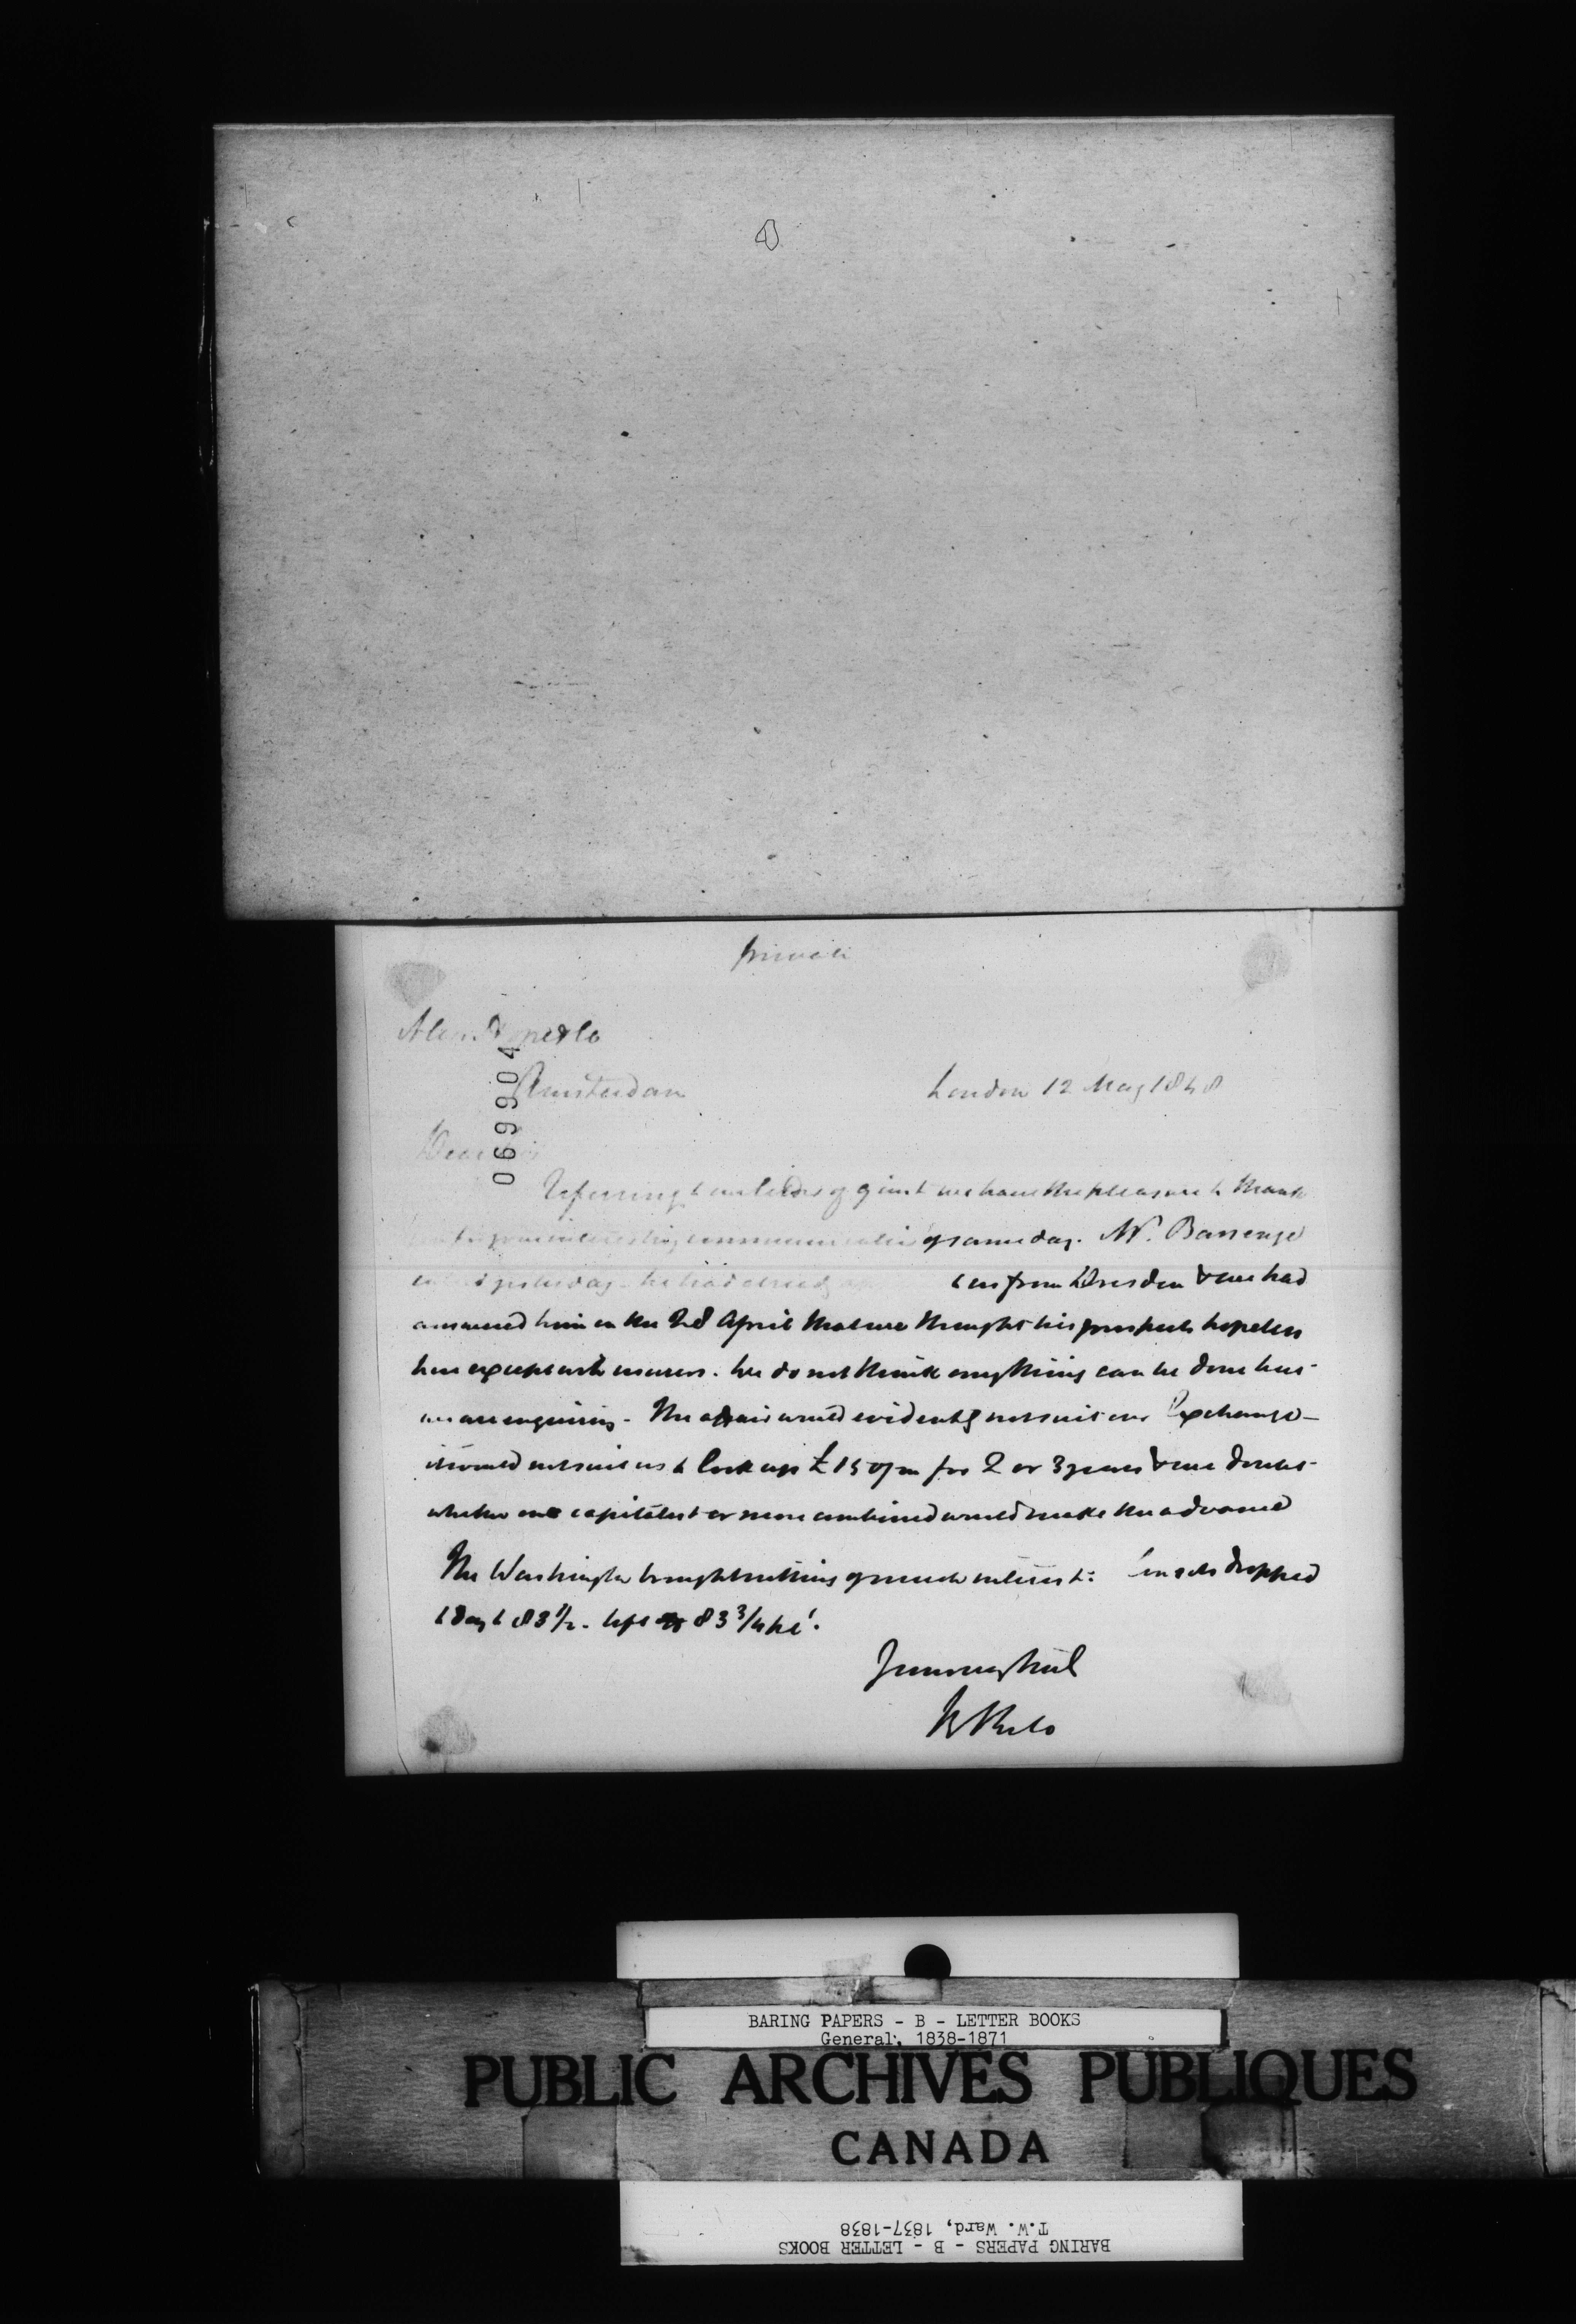 private
Hope & Co
Amsterdam
London 12 May 1848
Dear
Referring to our letters of 9 inst we have the pleasure to thank
interesting communication of same day. Mr. Bassenge
yesterday - he had already to us from Dresden & we had
answered him on the 28 April that we thought his prospects hopeless
here except with usurers. We do not think anything can be done here -
we are enquiring - The affair would evidently not suit our Exchange -
it would not suit us to lock up £ 150/m for 2 or 3 years & we doubt
whether one capitalist or more combined would make the advance
The Washington brought nothing of much interest: Consols dropped
to day to 83 1/2 - left 83 3/4
Yours very truly
BB & Co
069904
BARING PAPERS - B - LETTER BOOKS
General, 1838-1871
PUBLIC ARCHIVES PUBLIQUES
CANADA
BARING PAPERS - B - LETTER BOOKS
T.W. Ward, 1837-1838